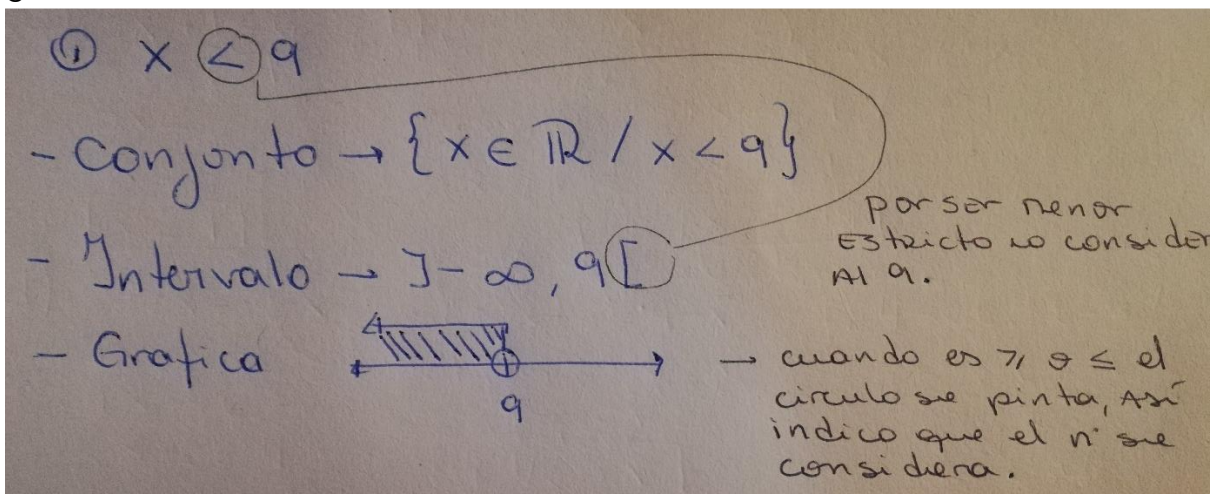 ① x < 9
- Conjonto → {x ∈ ℝ / x < 9}
- Intervalo → ]-∞, 9[
por ser menor
Estricto no consider
Al 9.
- Grafica
9
→ cuando es ≥ o ≤ el
circulo se pinta, Así
indico que el n° se
considera.